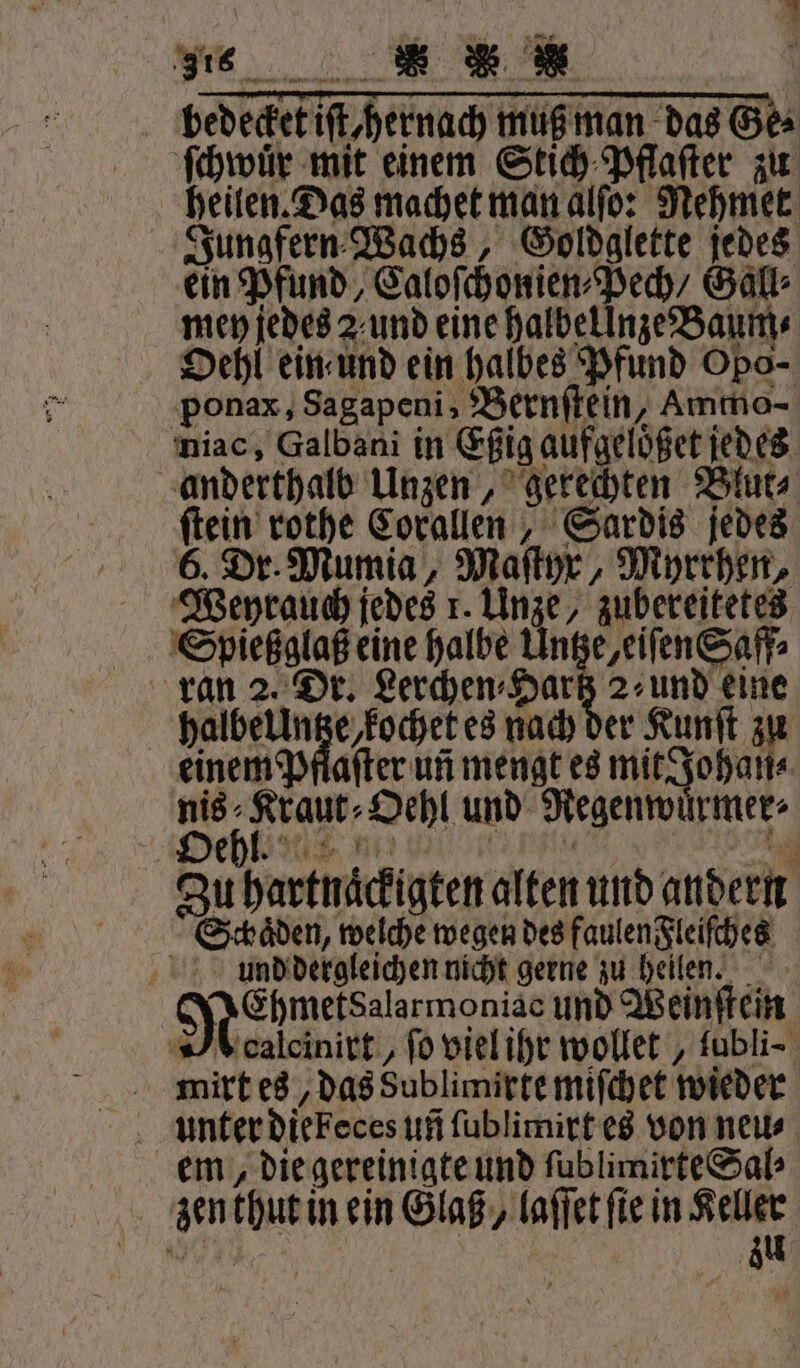 316
bedecket iſt, hernach muß man das Ge⸗
ſchwuͤr mit einem Stich⸗Pflaſter zu
heilen. Das machet man alſo: Nehmet
Jungfern⸗Wachs, Goldglette jedes
ein Pfund, Caloſchonien⸗Pech, Gall⸗
mey jedes 2⸗und eine halbe Unze Baum⸗
Oehl ein⸗und ein halbes Pfund Opo-
ponax, Sagapeni, Bernſtein, Ammo-
niac, Galbani in Eßig aufgeloͤßet jedes
anderthalb Unzen, gerechten Blut⸗
ſtein rothe Corallen, Sardis jedes
6. Dr. Mumia, Maſtyx, Myrrhen,
Weyrauch jedes 1. Unze, zubereitetes
Spießglaß eine halbe Untze, eiſen Saff⸗
ran 2. Dr. Lerchen⸗Hartz 2⸗und eine
halbe Untze, kochet es nach der Kunſt zu
einem Pflaſter un̄ mengt es mit Johan⸗
nis⸗Kraut⸗Oehl und Regenwuͤrmer⸗
Oehl.
Zu hartnaͤckigten alten und andern
Schaͤden, welche wegen des faulen Fleiſches
und dergleichen nicht gerne zu heilen.
NEhmet Salarmoniac und Weinſtein
calcinirt, ſo viel ihr wollet, ſubli-
mirt es, das Sublimirte miſchet wieder
unter die Feces un̄ ſublimirt es von neu⸗
em, die gereinigte und ſublimirte Sal⸗
zen thut in ein Glaß, laſſet ſie in Keller
zu